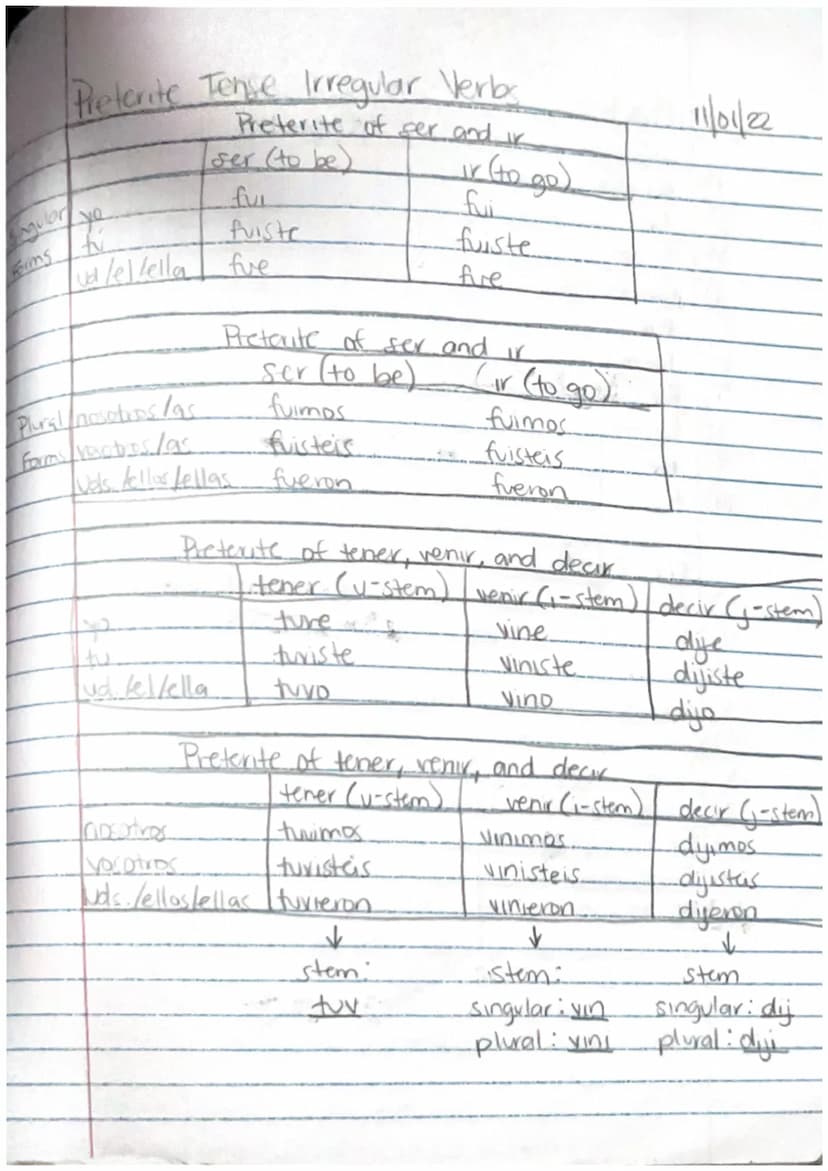 Preterite Tense Irregular Verbs
11/01/22
Preterite of ser and ir
ser (to be) ir (to go)
Singular yo fui fui
tú fuiste fuiste
Forms ud/el/ella fue fue
Preterite of ser and ir
ser (to be) ir (to go)
Plural nosotros/as fuimos fuimos
Forms vosotros/as fuisteis fuisteis
Uds./ellos/ellas fueron fueron
Preterite of tener, venir, and decir
tener (u-stem) venir (i-stem) decir (j-stem)
yo tuve vine dije
tu tuviste viniste dijiste
ud./el/ella tuvo vino dijo
Preterite of tener, venir, and decir
tener (u-stem) venir (i-stem) decir (j-stem)
nosotros tuvimos vinimos dijimos
vosotros tuvisteis vinisteis dijisteis
Uds./ellos/ellas tuvieron vinieron dijeron
↓ ↓ ↓
stem: stem: stem
tuv singular: vin singular: dij
plural: vini plural: diji